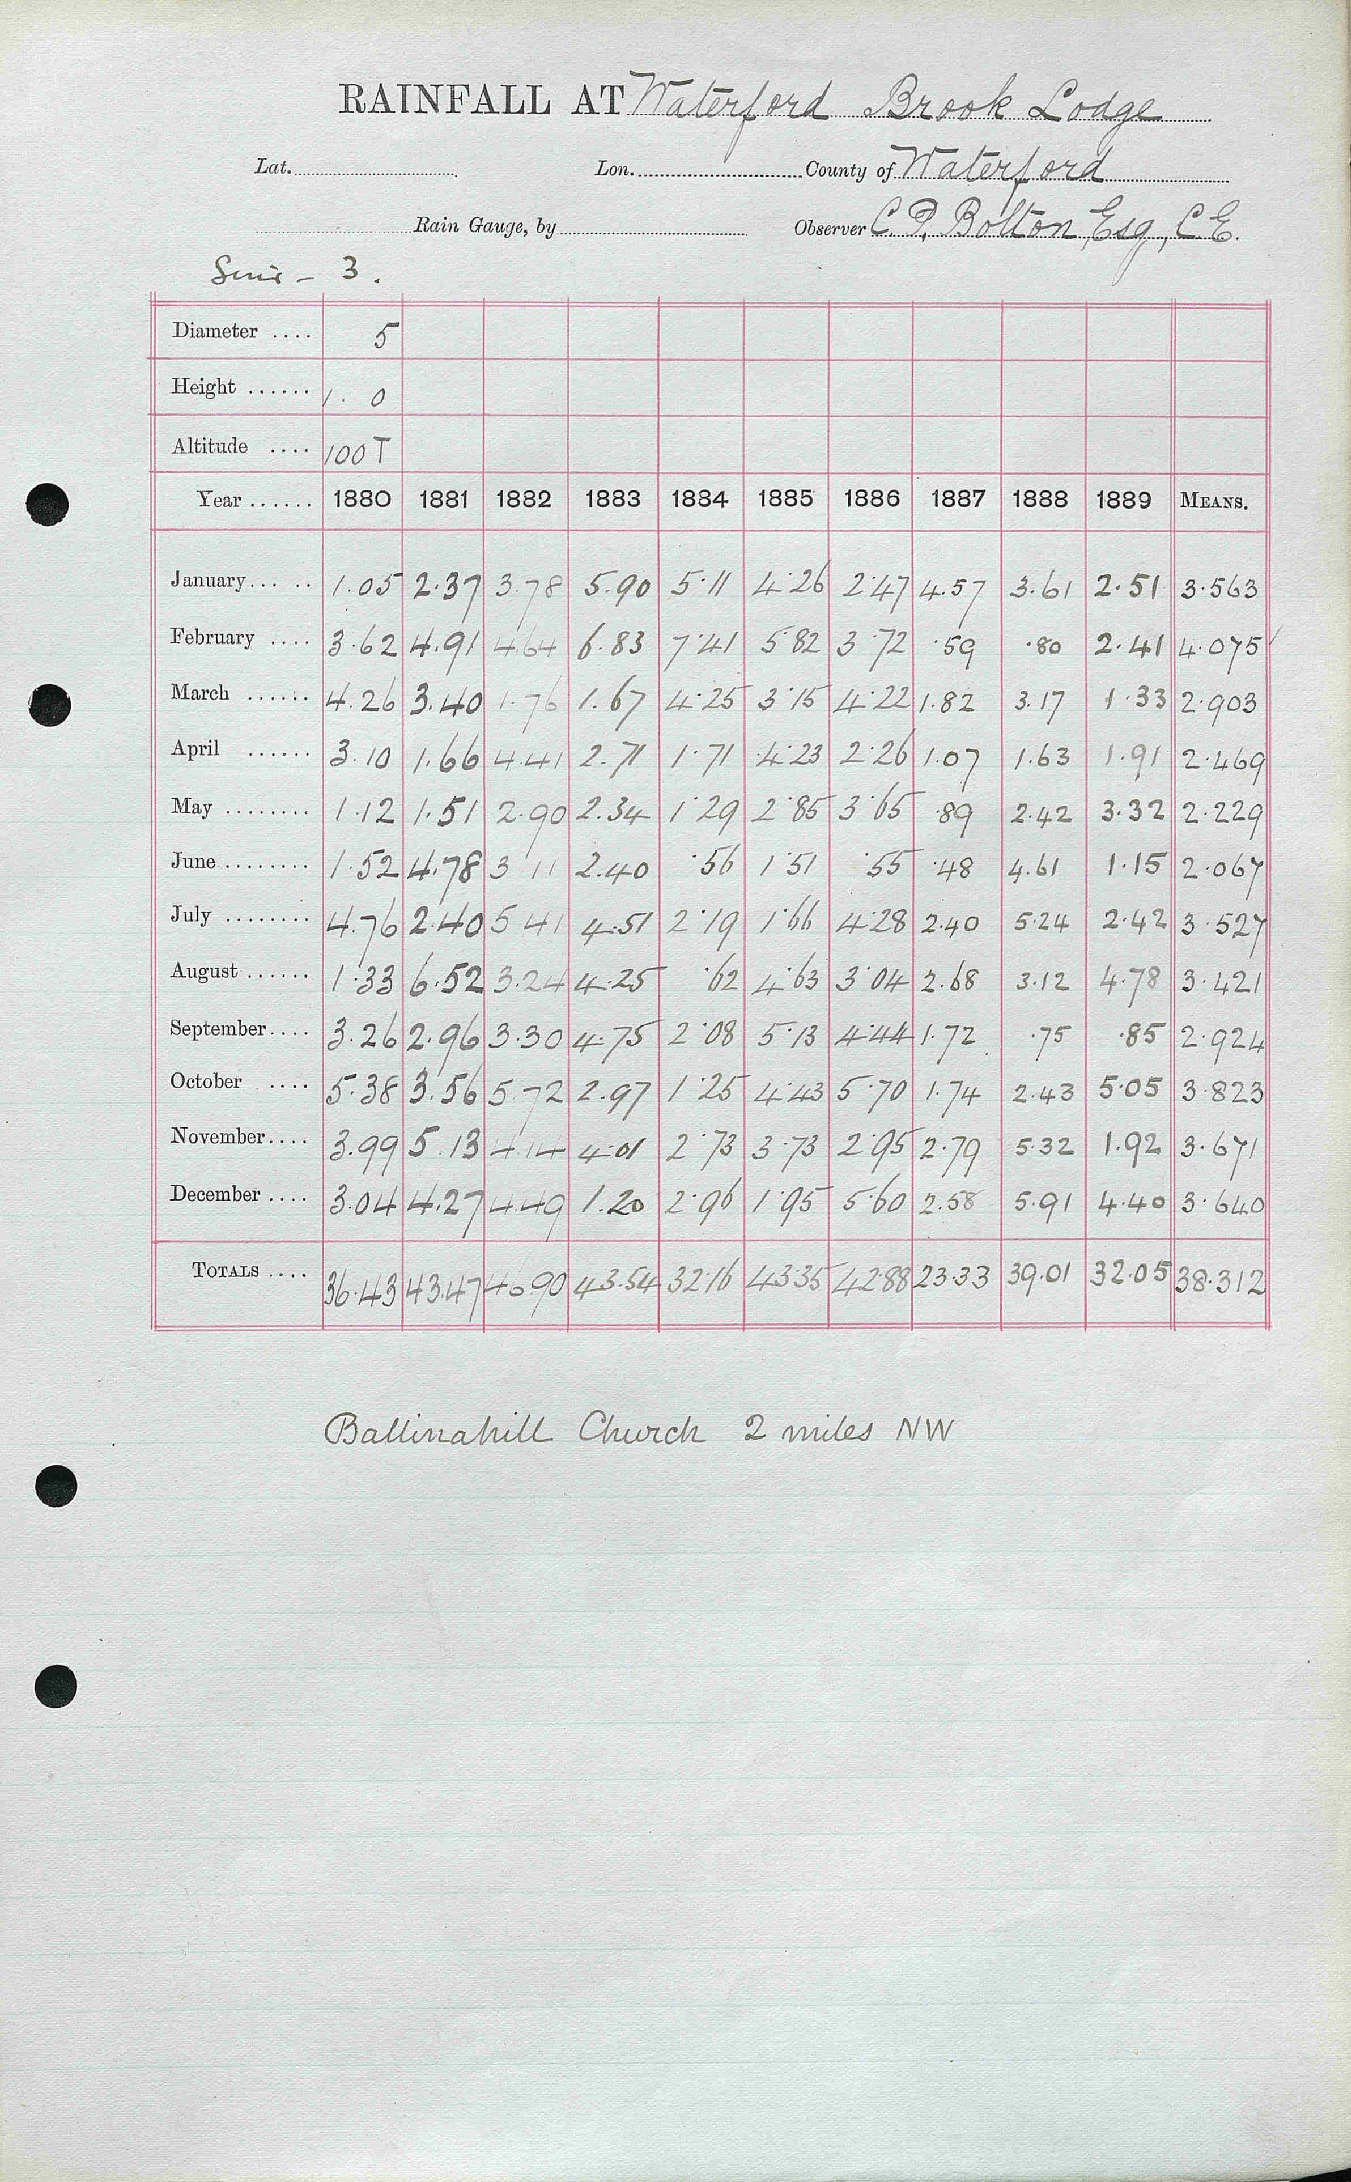 RAINFALL AT Waterford Brook Lodge
Lat. Lon. County of Waterford
Rain Gauge, by Observer C. P. Bolton, Esq, C.E.
3.
Diameter .... 5
Height ...... 1. 0
Altitude .... 100 T
Year ...... 1880 1881 1882 1883 1884 1885 1886 1887 1888 1889 MEANS.
January ... .. 1.05 2.37 3.78 5.90 5.11 4.26 2.47 4.57 3.61 2.51 3.563
February .... 3.62 4.91 4.64 6.83 7.41 5.82 3.72 .59 .80 2.41 4.075
March ...... 4.26 3.40 1.76 1.67 4.25 3.15 4.22 1.82 3.17 1.33 2.903
April ...... 3.10 1.66 4.41 2.71 1.71 4.23 2.26 1.07 1.63 1.91 2.469
May ........ 1.12 1.51 2.90 2.34 1.29 2.85 3.65 .89 2.42 3.32 2.229
June ........ 1.52 4.78 3 11 2.40 .56 1.51 .55 .48 4.61 1.15 2.067
July ........ 4.76 2.40 5 41 4.51 2.19 1.66 4.28 2.40 5.24 2.42 3.527
August ...... 1.33 6.52 3.24 4.25 .62 4.63 3.04 2.68 3.12 4.78 3.421
September .... 3.26 2.96 3.30 4.75 2.08 5.13 4.44 1.72 .75 .85 2.924
October .... 5.38 3.56 5.72 2.97 1.25 4.43 5.70 1.74 2.43 5.05 3.823
November .... 3.99 5.13 4.14 4.01 2.73 3.73 2.95 2.79 5.32 1.92 3.671
December .... 3.04 4.27 4.49 1.20 2.96 1.95 5.60 2.58 5.91 4.40 3.640
TOTALS .... 36.43 43.47 46.90 43.54 32.16 43.35 42.88 23.33 39.01 32.05 38.312
Ballinahill Church 2 miles NW